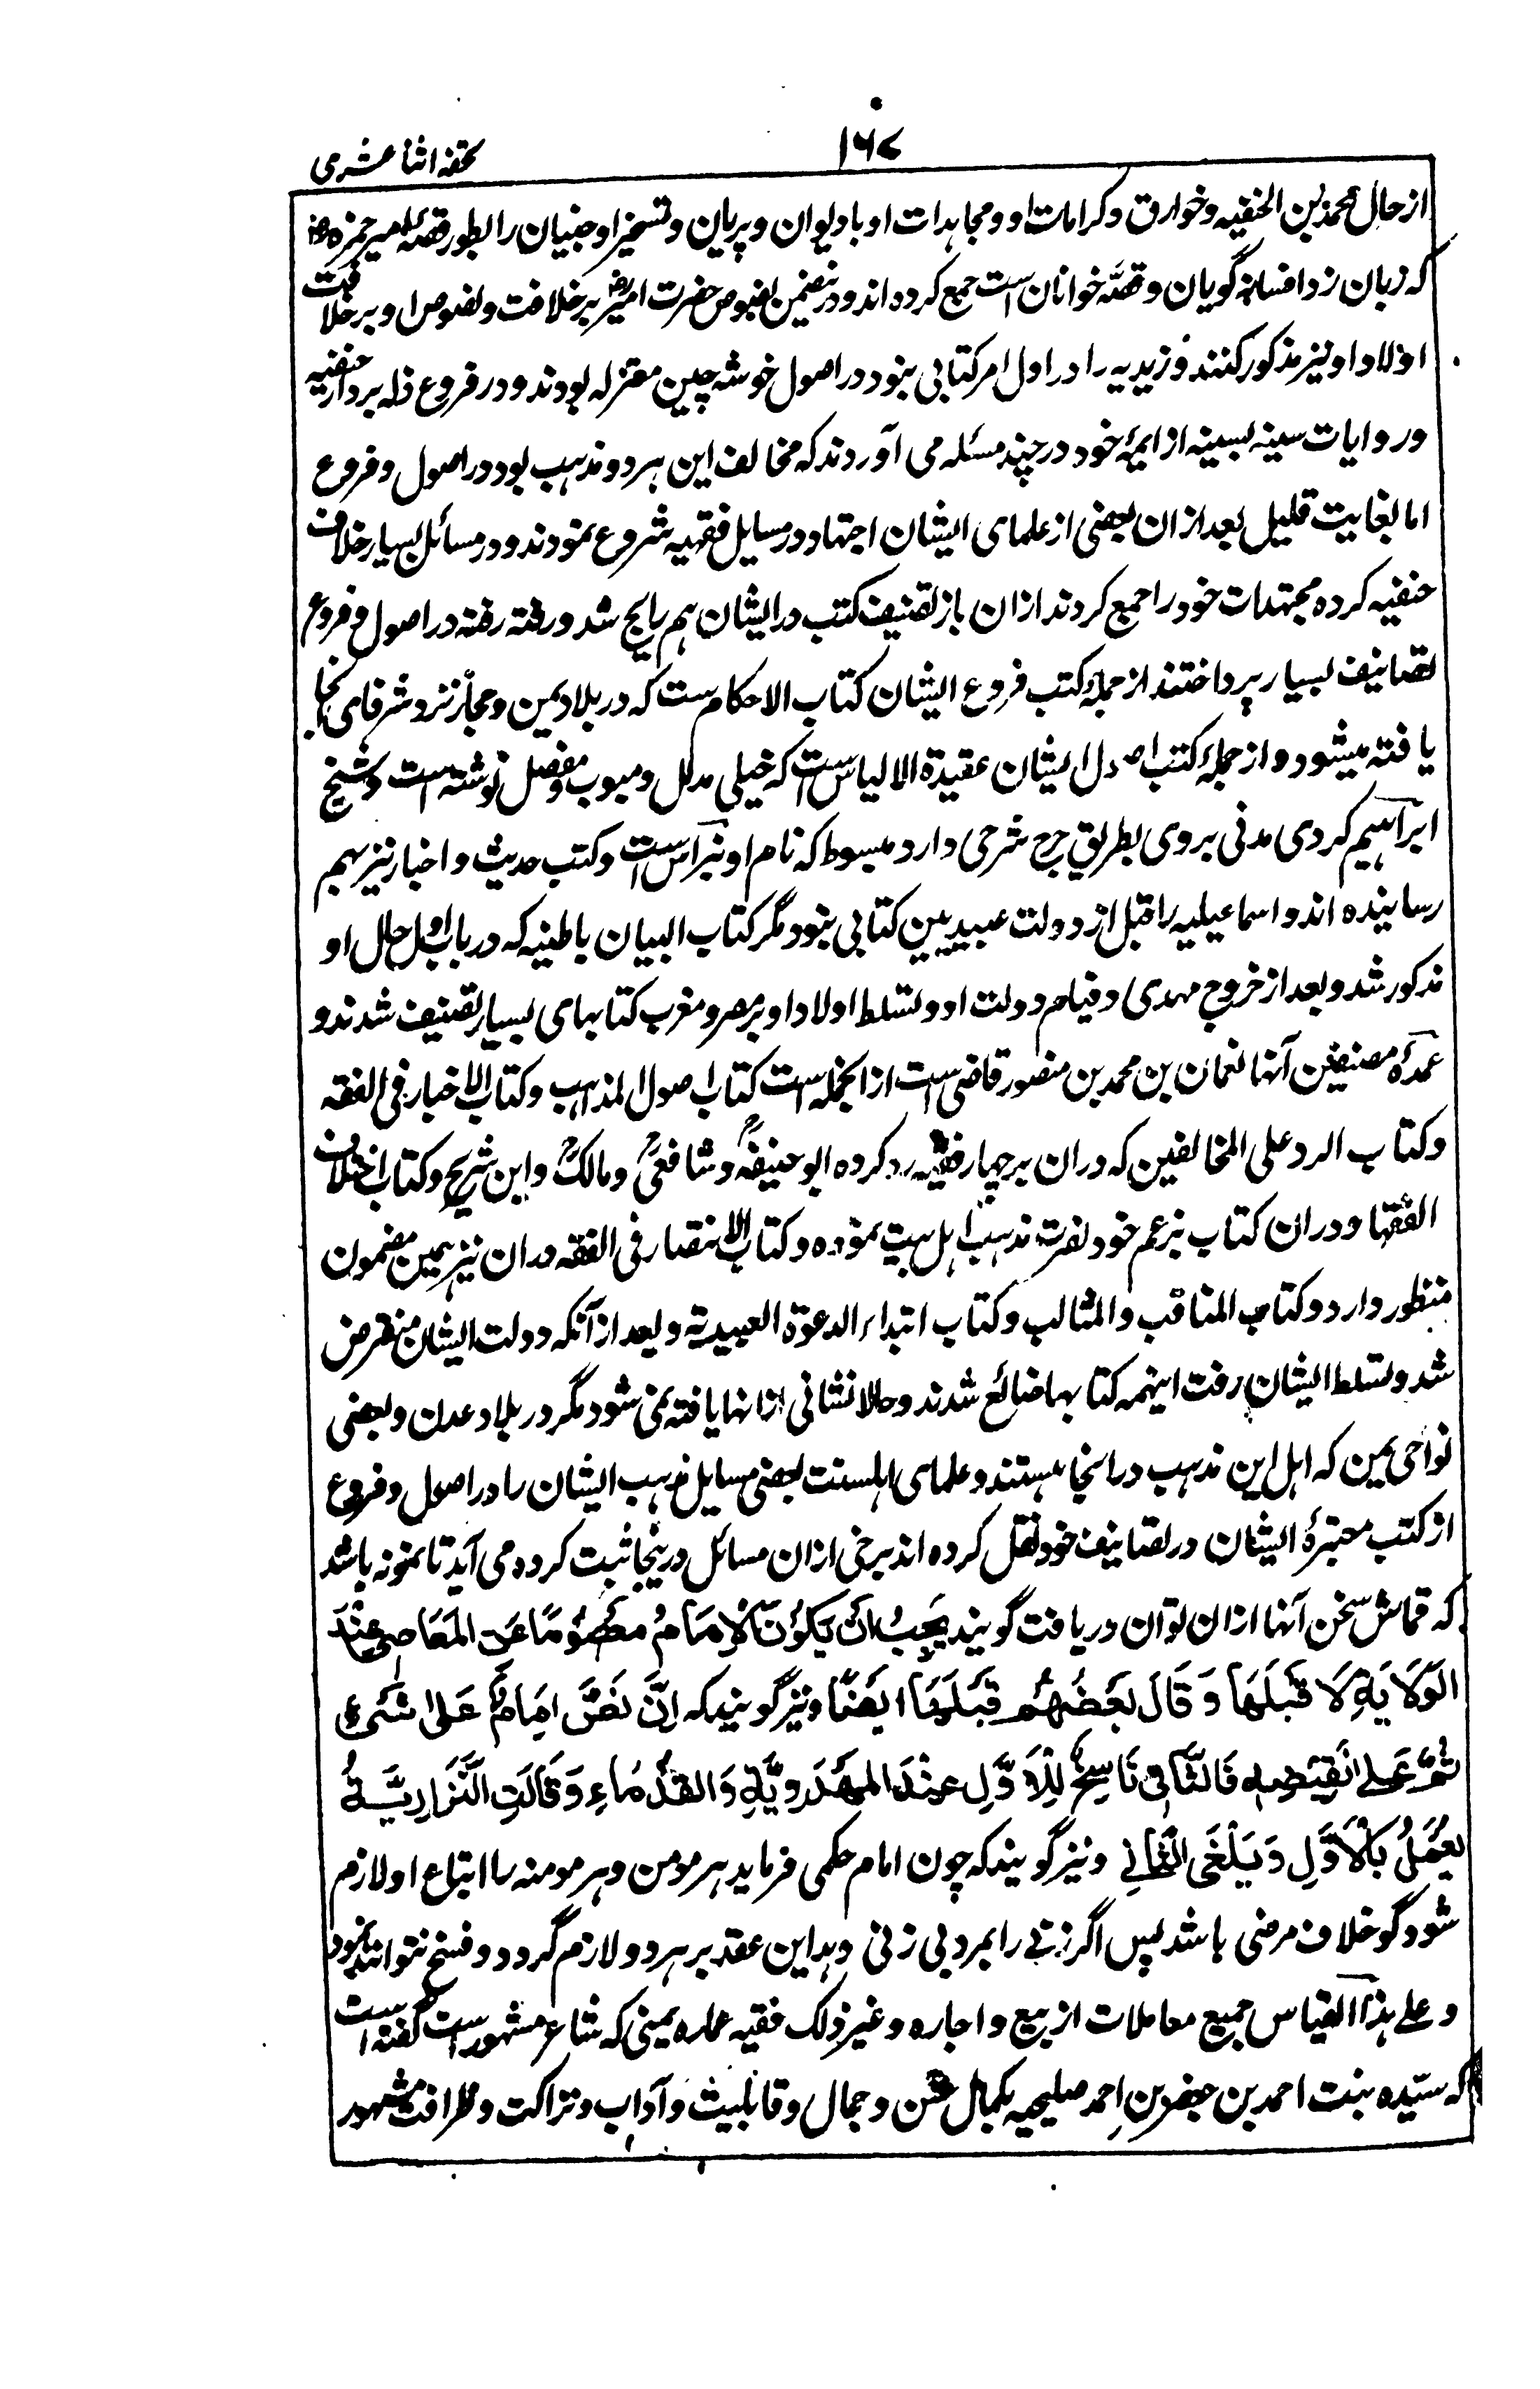 ۱۶۷
تحفہ اثنا عشری
از حال محمد بن الحنفیہ و خوارق و کرامات او و مجاہدات او با دیوان و پریان و تسخیر او جنیان را بطور قصۂ امیر حمزہ رض
کہ زبان زد افسانہ گویان و قصہ خوانان است جمع کردہ اند و در ضمن نصوص حضرت امیر رض بر خلافت و نصوص او بر خلافت
اولاد او نیز مذکور کنند و زیدیہ را در اول امر کتابی نبود در اصول خوشہ چین معتزلہ بودند و در فروع ذلہ بردار حنفیہ
و روایات سینہ بسینہ از ایمۂ خود در چند مسئلہ می آوردند کہ مخالف این ہر دو مذہب بود در اصول و فروع
اما بغایت قلیل بعد ازان بعضی از علمای ایشان اجتہاد در مسایل فقہیہ شروع نمودند و در مسائل بسیار خلاف
حنفیہ کردہ مجتہدات خود را جمع کردند ازان باز تصنیف کتب در ایشان ہم رایج شد و رفتہ رفتہ در اصول و فروع
تصانیف بسیار پرداختند از جملۂ کتب فروع ایشان کتاب الاحکام ست کہ در بلاد یمن و حجاز نزد شرفای آنجا
یافتہ میشود و از جملۂ کتب اصول ایشان عقیدۃ الالیاس ست کہ خیلی مدلل و مبوب و مفصل نوشتہ است و شیخ
ابراہیم کردی مدنی بروی بطریق جرح شرحی دارد مبسوط کہ نام او نبراس ست و کتب حدیث و اخبار نیز بہم
رسانیدہ اند و اسماعیلیہ را قبل از دولت عبیدیین کتابی نبود مگر کتاب البیان باطنیہ کہ در باب اول حال او
مذکور شد و بعد از خروج مہدی و قیام دولت او و تسلط اولاد او بر مصر و مغرب کتابہای بسیار تصنیف شدند و
عمدۂ مصنفین آنہا نعمان بن محمد بن منصور قاضی ست از انجملہ است کتاب اصول المذاہب و کتاب الاخبار فی الفقہ
و کتاب الرد علی المخالفین کہ دران بر چہار فقیہ رد کردہ ابو حنیفہ و شافعی و مالک و ابن شریح و کتاب اختلاف
الفقہا و دران کتاب بزعم خود نصرت مذہب اہل بیت نمودہ و کتاب الانتصار فی الفقہ دران نیز ہمین مضمون
منظور دارد و کتاب المناقب و المثالب و کتاب ابتداء الدعوۃ العبیدیۃ و بعد از آنکہ دولت ایشان منقرض
شد و تسلط ایشان رفت اینہمہ کتابہا ضائع شدند و حالا نشانی از آنہا یافتہ نمی شود مگر در بلاد عدن و بعضی
نواحی یمن کہ اہل این مذہب در انجا ہستند و علمای اہلسنت بعضی مسایل مذہب ایشان را در اصول و فروع
از کتب معتبرۂ ایشان در تصانیف خود نقل کردہ اند برخی ازان مسائل درینجا ثبت کردہ می آید تا نمونہ باشد
کہ قماش سخن آنہا ازان توان دریافت گویند یَجِبُ اَنْ یَکُوْنَ الْاِمَامُ مَعْصُوْمًا عَنِ الْمَعَاصِی عِنْدَ
الْوَلَایَۃِ لَا قَبْلَہَا وَ قَالَ بَعْضُہُمْ قَبْلَہَا اَیْضًا و نیز گویند کہ اِنْ نَصَّ اِمَامٌ عَلٰی شَیْءٍ
ثُمَّ عَلٰی نَقِیْضِہٖ فَالثَّانِی نَاسِخٌ لِلْاَوَّلِ عِنْدَ الْمَہْدَوِیَّۃِ وَالْقُدَمَاءِ وَ قَالَتِ النَّزَارِیَّۃُ
یُعْمَلُ بِالْاَوَّلِ وَ یُلْغَی الثَّانِی و نیز گویند کہ چون امام حکمی فرماید ہر مومن و ہر مومنہ را اتباع او لازم
شود گو خلاف مرضی باشد پس اگر زنی را بمردی بزنی دہد این عقد بر ہر دو لازم گردد و فسخ نتوانند نمود
و علی ہذا القیاس جمیع معاملات از بیع و اجارہ و غیر ذلک فقیہ عمارہ یمنی کہ شاعر مشہور است گفتہ است
کہ سیّدہ بنت احمد بن جعفر بن احمد صلیحیہ بکمال حسن و جمال و قابلیت و آداب و نزاکت و ظرافت مشہور